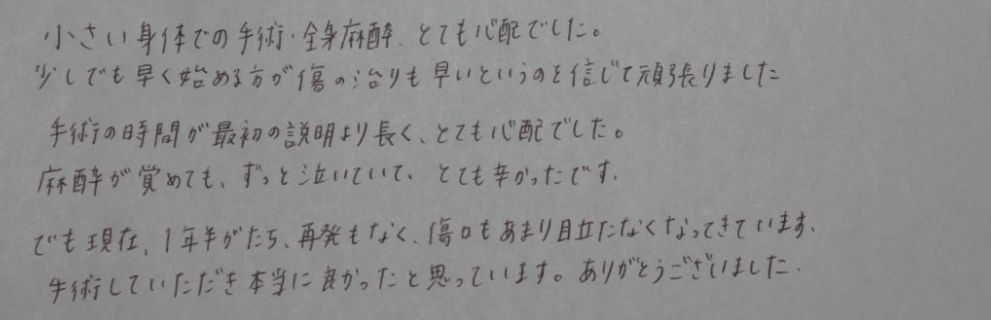 小さい身体での手術・全身麻酔、とても心配でした。
少しでも早く始める方が傷の治りも早いというのを信じて頑張りました
手術の時間が最初の説明より長く、とても心配でした。
麻酔が覚めても、ずっと泣いていて、とても辛かったです。
でも現在、1年半がたち、再発もなく、傷口もあまり目立たなくなってきています、
手術していただき本当に良かったと思っています。ありがとうございました.